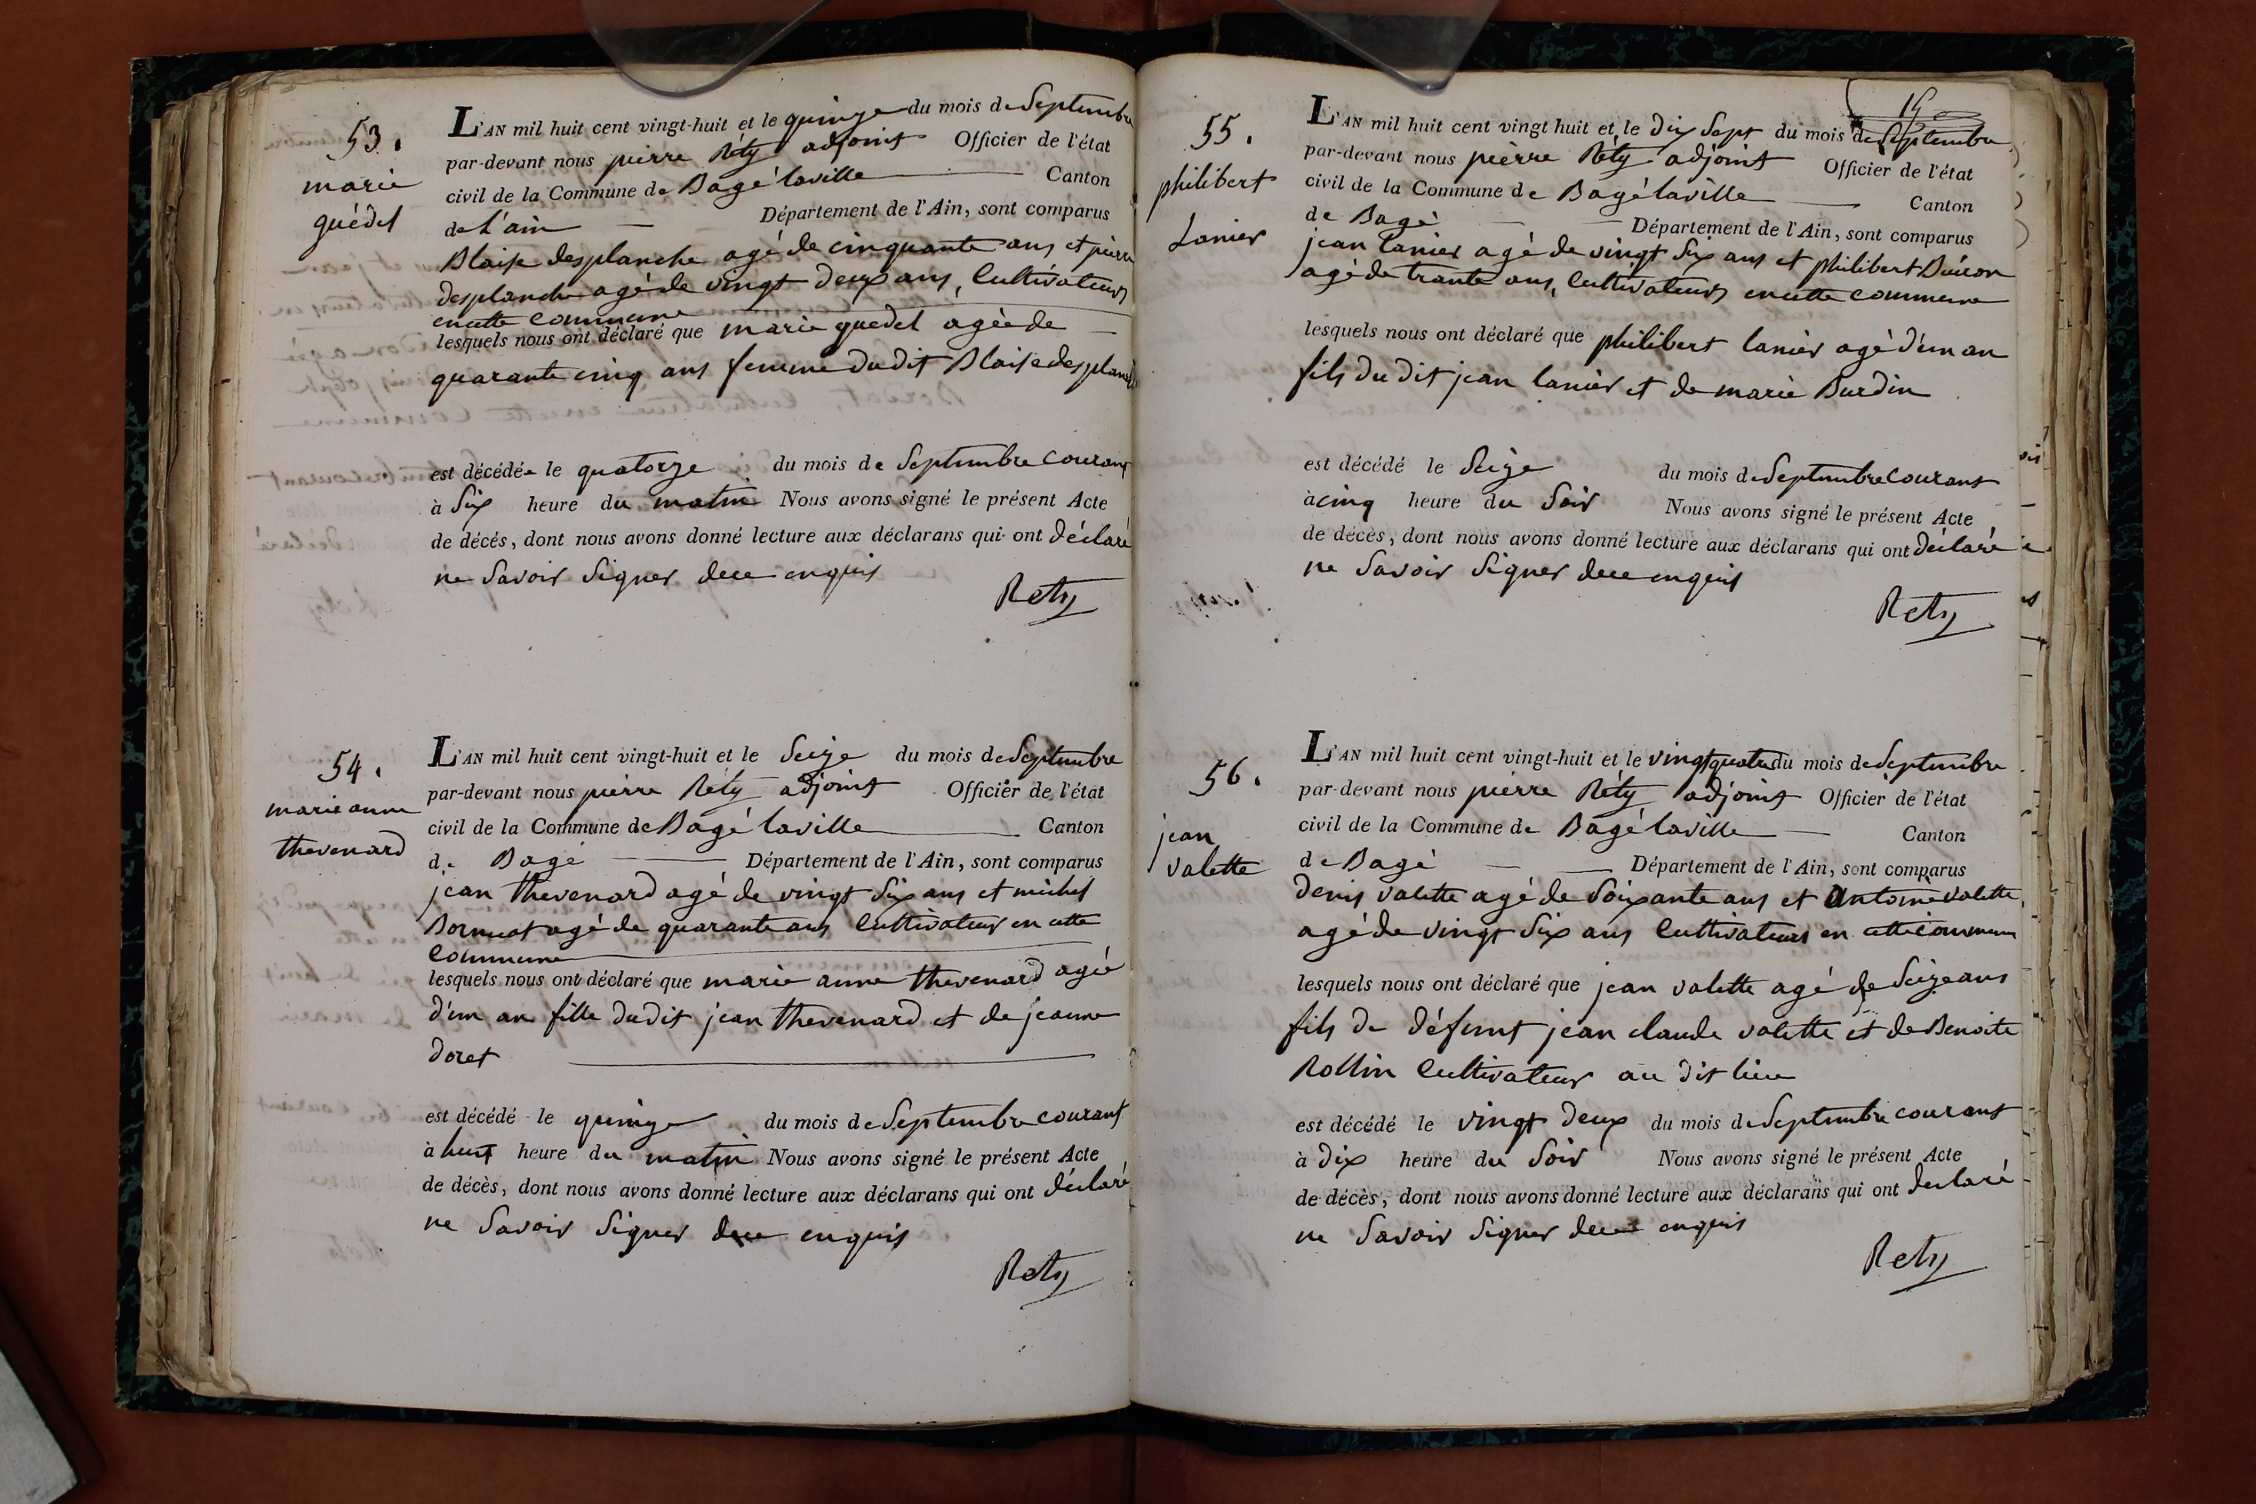 53.
marie
guédel
L'AN mil huit cent vingt-huit et le quinze du mois de Septembre
par-devant nous pierre Réty adjoint Officier de l'état
civil de la Commune de Bagé laville Canton
de L'ain Département de l'Ain, sont comparus
Blaise desplanche agé de cinquante ans et pierre
desplanche agé de vingt deux ans, Cultivateurs
en cette commune
lesquels nous ont déclaré que marie guedel agée de
quarante cinq ans femme du dit Blaise desplanche
est décédée le quatorze du mois de Septembre courant
à Six heure du matin Nous avons signé le présent Acte
de décés, dont nous avons donné lecture aux déclarans qui ont déclaré
ne Savoir Signer de ce enquis
Rety
54.
marie anne
thevenard
L'AN mil huit cent vingt-huit et le Seize du mois de Septembre
par-devant nous pierre Réty adjoint Officier de l'état
civil de la Commune de Bagé laville Canton
de Bagé Département de l'Ain, sont comparus
jean thevenard agé de vingt Six ans et michel
agé de quarante ans Cultivateurs en cette
Commune
lesquels nous ont déclaré que marie anne thevenard agée
d'un an fille du dit jean thevenard et de jeanne
doret
est décédé le quinze du mois de Septembre courant
à huit heure du matin Nous avons signé le présent Acte
de décès, dont nous avons donné lecture aux déclarans qui ont déclaré
ne Savoir Signer de ce enquis
Rety
15
55.
philibert
Lanier
L'AN mil huit cent vingt huit et le dix Sept du mois de Septembre
par-devant nous pierre Réty adjoint Officier de l'état
civil de la Commune de Bagé laville Canton
de Bagé Département de l'Ain, sont comparus
jean lanier agé de vingt Six ans et philibert
agé de trante ans, Cultivateurs en cette commune
lesquels nous ont déclaré que philibert lanier agé d'un an
fils du dit jean lanier et de marie Burdin
est décédé le Seize du mois de Septembre courant
à cinq heure du Soir Nous avons signé le présent Acte
de décès, dont nous avons donné lecture aux déclarans qui ont déclaré
ne Savoir Signer de ce enquis
Rety
56.
jean
valette
L'AN mil huit cent vingt-huit et le vingt quatre du mois de Septembre
par-devant nous pierre Réty adjoint Officier de l'état
civil de la Commune de Bagé laville Canton
de Bagé Département de l'Ain, sont comparus
denis valette agé de Soixante ans et antoine valette
agé de vingt Six ans Cultivateurs en cette commune
lesquels nous ont déclaré que jean valette agé de Seize ans
fils de défunt jean claude valette et de Benoite
Rollin Cultivateur au dit lieu
est décédé le vingt deux du mois de Septembre courant
à dix heure du Soir Nous avons signé le présent Acte
de décès, dont nous avons donné lecture aux déclarans qui ont declaré
ne Savoir Signer de ce enquis
Rety